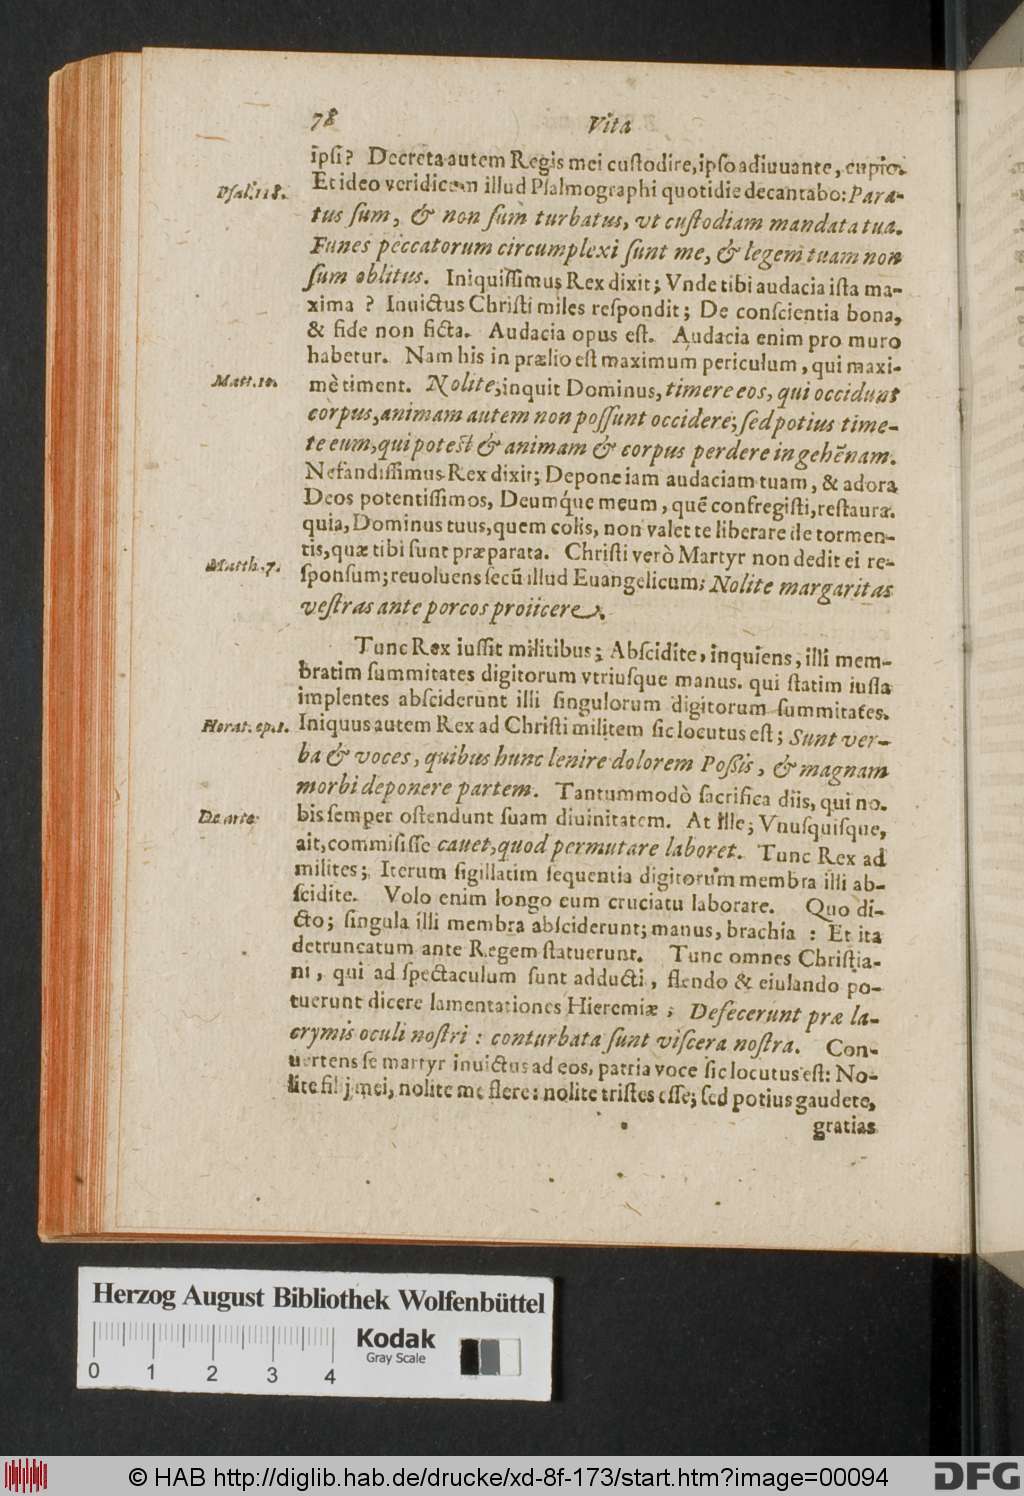 78 Vita
ipſi? Decreta autem Regis mei cuſtodire, ipſo adiuuante, cupio.
Psal. 118. Et ideo veridicum illud Pſalmographi quotidie decantabo: Para-
tus ſum, & non ſum turbatus, vt cuſtodiam mandata tua.
Funes peccatorum circumplexi ſunt me, & legem tuam non
ſum oblitus. Iniquiſſimus Rex dixit; Vnde tibi audacia iſta ma-
xima? Inuictus Chriſti miles reſpondit; De conſcientia bona,
& fide non ficta. Audacia opus eſt. Audacia enim pro muro
habetur. Nam his in prælio eſt maximum periculum, qui maxi-
Matt. 10. mè timent. Nolite, inquit Dominus, timere eos, qui occidunt
corpus, animam autem non poſſunt occidere; ſed potius time-
te eum, qui poteſt & animam & corpus perdere in gehēnam.
Nefandiſſimus Rex dixit; Depone iam audaciam tuam, & adora
Deos potentiſſimos, Deumq́ue meum, quē confregiſti, reſtaura.
quia, Dominus tuus, quem colis, non valet te liberare de tormen-
tis, quæ tibi ſunt præparata. Chriſti verò Martyr non dedit ei re-
Matth. 7. ſponſum; reuoluens ſecū illud Euangelicum; Nolite margaritas
veſtras ante porcos proiicere.
Tunc Rex iuſſit militibus; Abſcidite, inquiens, illi mem-
bratim ſummitates digitorum vtriuſque manus. qui ſtatim iuſſa
implentes abſciderunt illi ſingulorum digitorum ſummitates.
Horat. ep. 1. Iniquus autem Rex ad Chriſti militem ſic locutus eſt; Sunt ver-
ba & voces, quibus hunc lenire dolorem Poſſis, & magnam
morbi deponere partem. Tantummodò ſacrifica diis, qui no-
De arte bis ſemper oſtendunt ſuam diuinitatem. At ille; Vnuſquiſque,
ait, commiſiſſe cauet, quod permutare laboret. Tunc Rex ad
milites; Iterum ſigillatim ſequentia digitorum membra illi ab-
ſcidite. Volo enim longo eum cruciatu laborare. Quo di-
cto; ſingula illi membra abſciderunt; manus, brachia: Et ita
detruncatum ante Regem ſtatuerunt. Tunc omnes Chriſtia-
ni, qui ad ſpectaculum ſunt adducti, flendo & eiulando po-
tuerunt dicere lamentationes Hieremiæ; Defecerunt præ la-
crymis oculi noſtri: conturbata ſunt viſcera noſtra. Con-
uertens ſe martyr inuictus ad eos, patria voce ſic locutus eſt: No-
lite filij mei, nolite me flere: nolite triſtes eſſe; ſed potius gaudete,
gratias
Herzog August Bibliothek Wolfenbüttel
Kodak
Gray Scale
0 1 2 3 4
© HAB http://diglib.hab.de/drucke/xd-8f-173/start.htm?image=00094
DFG